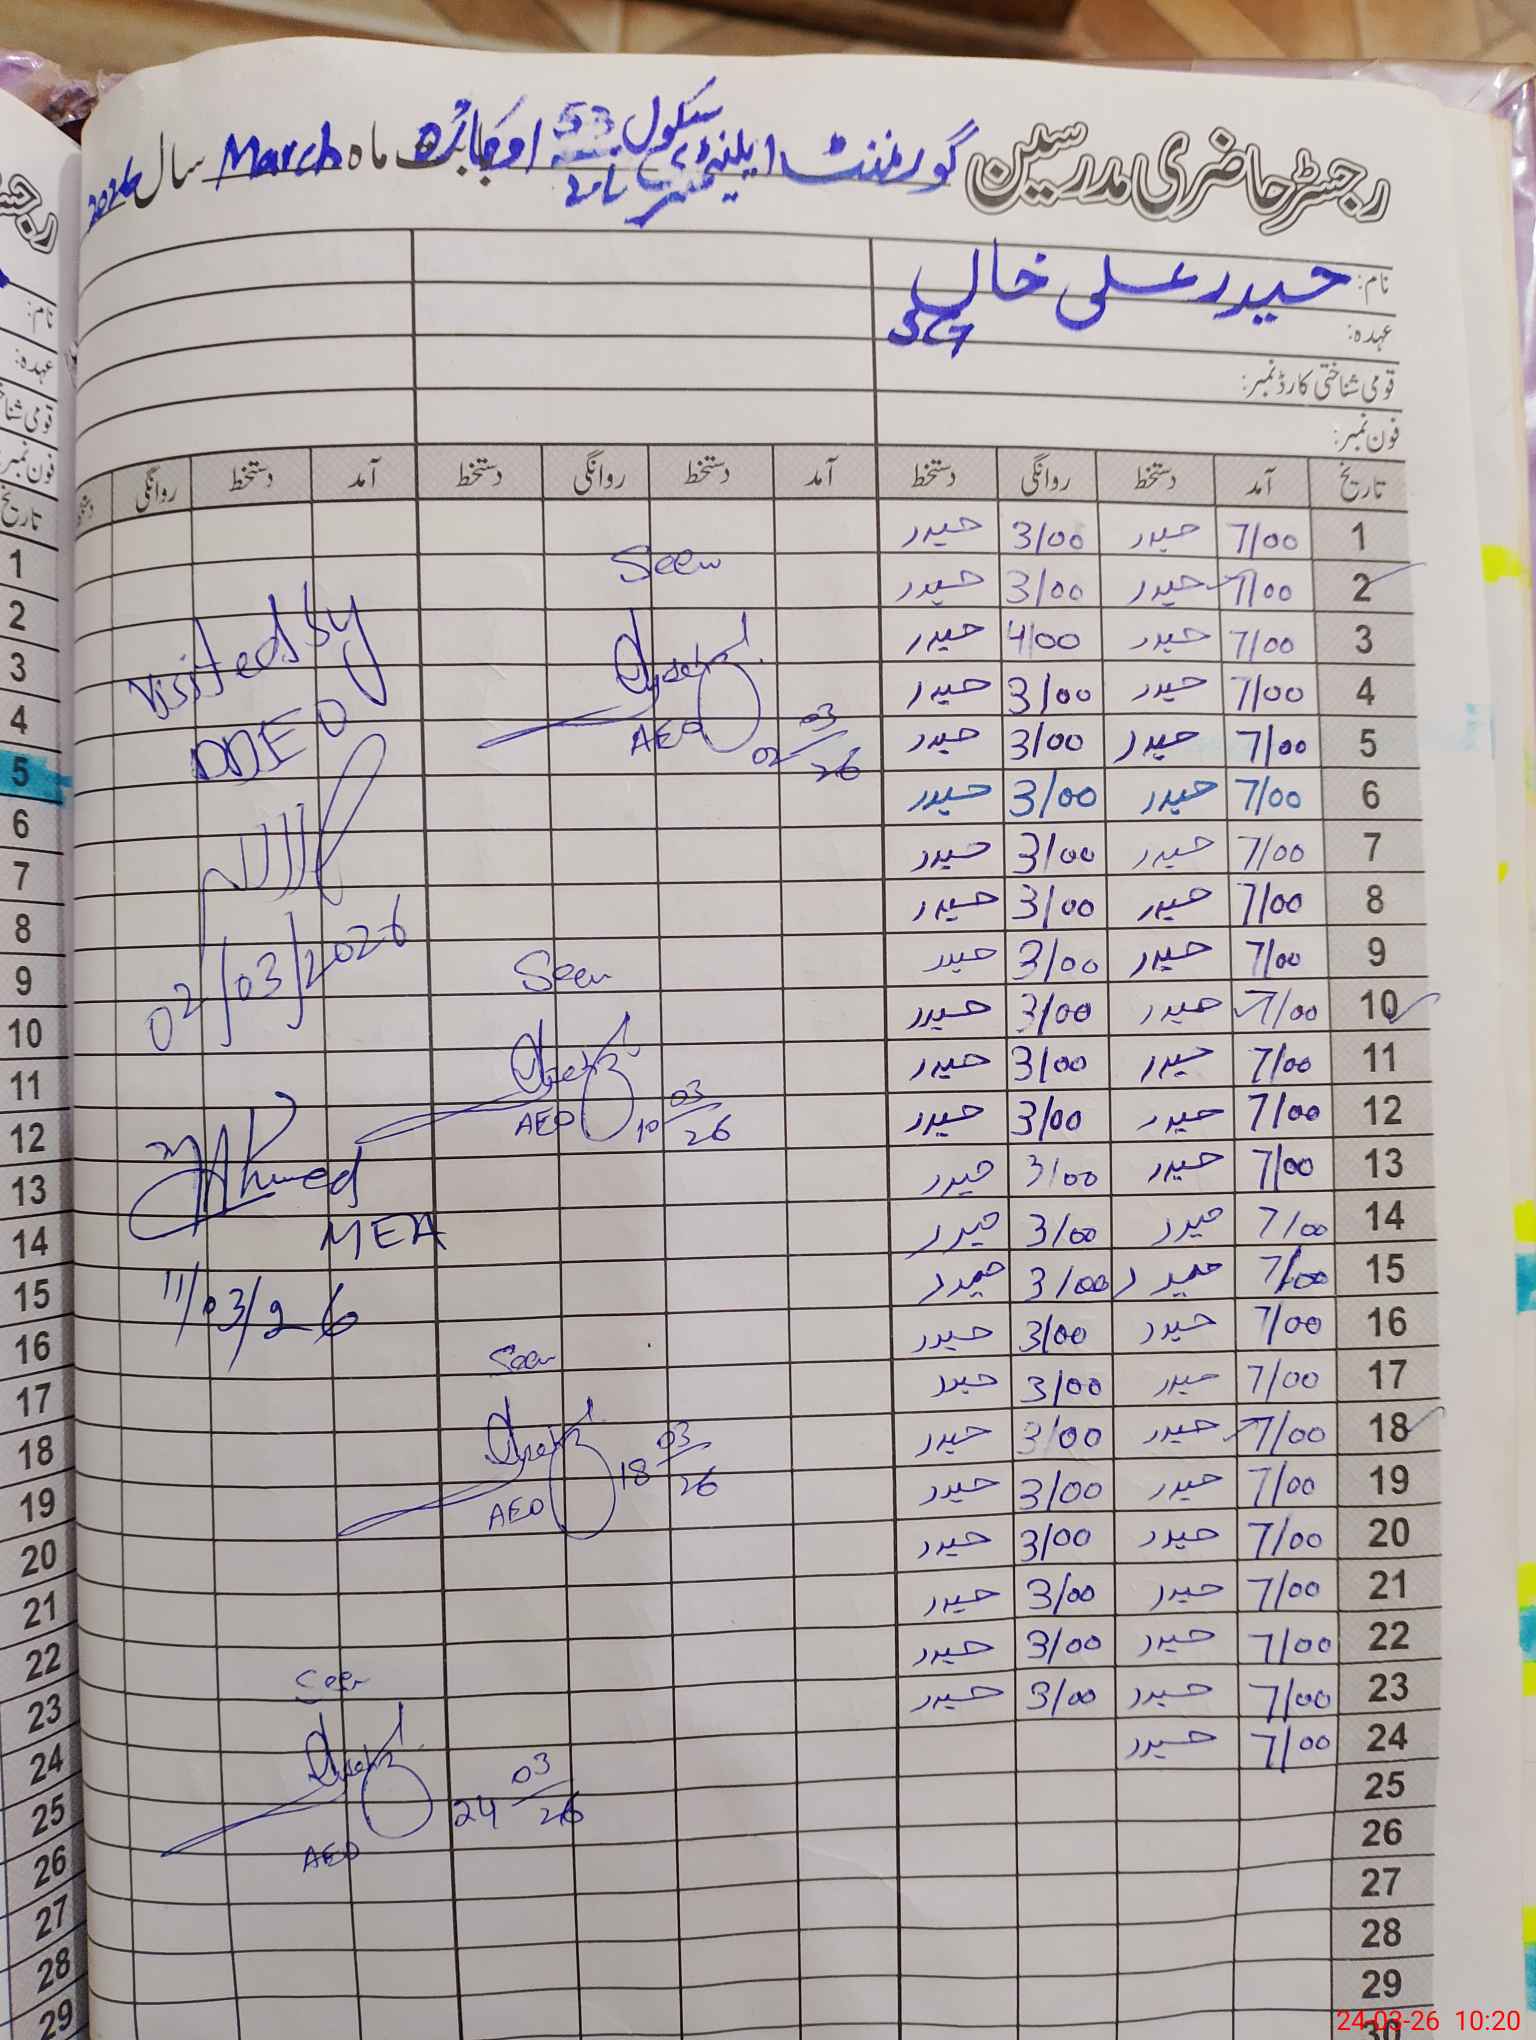 رجسٹر حاضری مدرسین گورنمنٹ ایلیمنٹری سکول 53 بابت ماہ March سال 2026
نام: حیدر علی خاں
عہدہ:
قومی شناختی کارڈ نمبر:
فون نمبر:
تاریخ آمد دستخط روانگی دستخط آمد دستخط روانگی دستخط آمد دستخط روانگی
1 7/00 حیدر 3/00 حیدر
2 7/00 حیدر 3/00 حیدر
3 7/00 حیدر 4/00 حیدر
4 7/00 حیدر 3/00 حیدر
5 7/00 حیدر 3/00 حیدر
6 7/00 حیدر 3/00 حیدر
7 7/00 حیدر 3/00 حیدر
8 7/00 حیدر 3/00 حیدر
9 7/00 حیدر 3/00 حیدر
10 7/00 حیدر 3/00 حیدر
11 7/00 حیدر 3/00 حیدر
12 7/00 حیدر 3/00 حیدر
13 7/00 حیدر 3/00 حیدر
14 7/00 حیدر 3/00 حیدر
15 7/00 حیدر 3/00 حیدر
16 7/00 حیدر 3/00 حیدر
17 7/00 حیدر 3/00 حیدر
18 7/00 حیدر 3/00 حیدر
19 7/00 حیدر 3/00 حیدر
20 7/00 حیدر 3/00 حیدر
21 7/00 حیدر 3/00 حیدر
22 7/00 حیدر 3/00 حیدر
23 7/00 حیدر 3/00 حیدر
24 7/00 حیدر
25
26
27
28
29
30
Seen
AEO
02 03/26
Visited by
DDEO
02/03/2026
Seen
AEO
10 03/26
Ahmed
MEA
11/03/26
Seen
AEO
18 03/26
Seen
AEO
24 03/26
نام:
عہدہ:
فون نمبر:
تاریخ
1
2
3
4
5
6
7
8
9
10
11
12
13
14
15
16
17
18
19
20
21
22
23
24
25
26
27
28
29
24-03-26 10:20